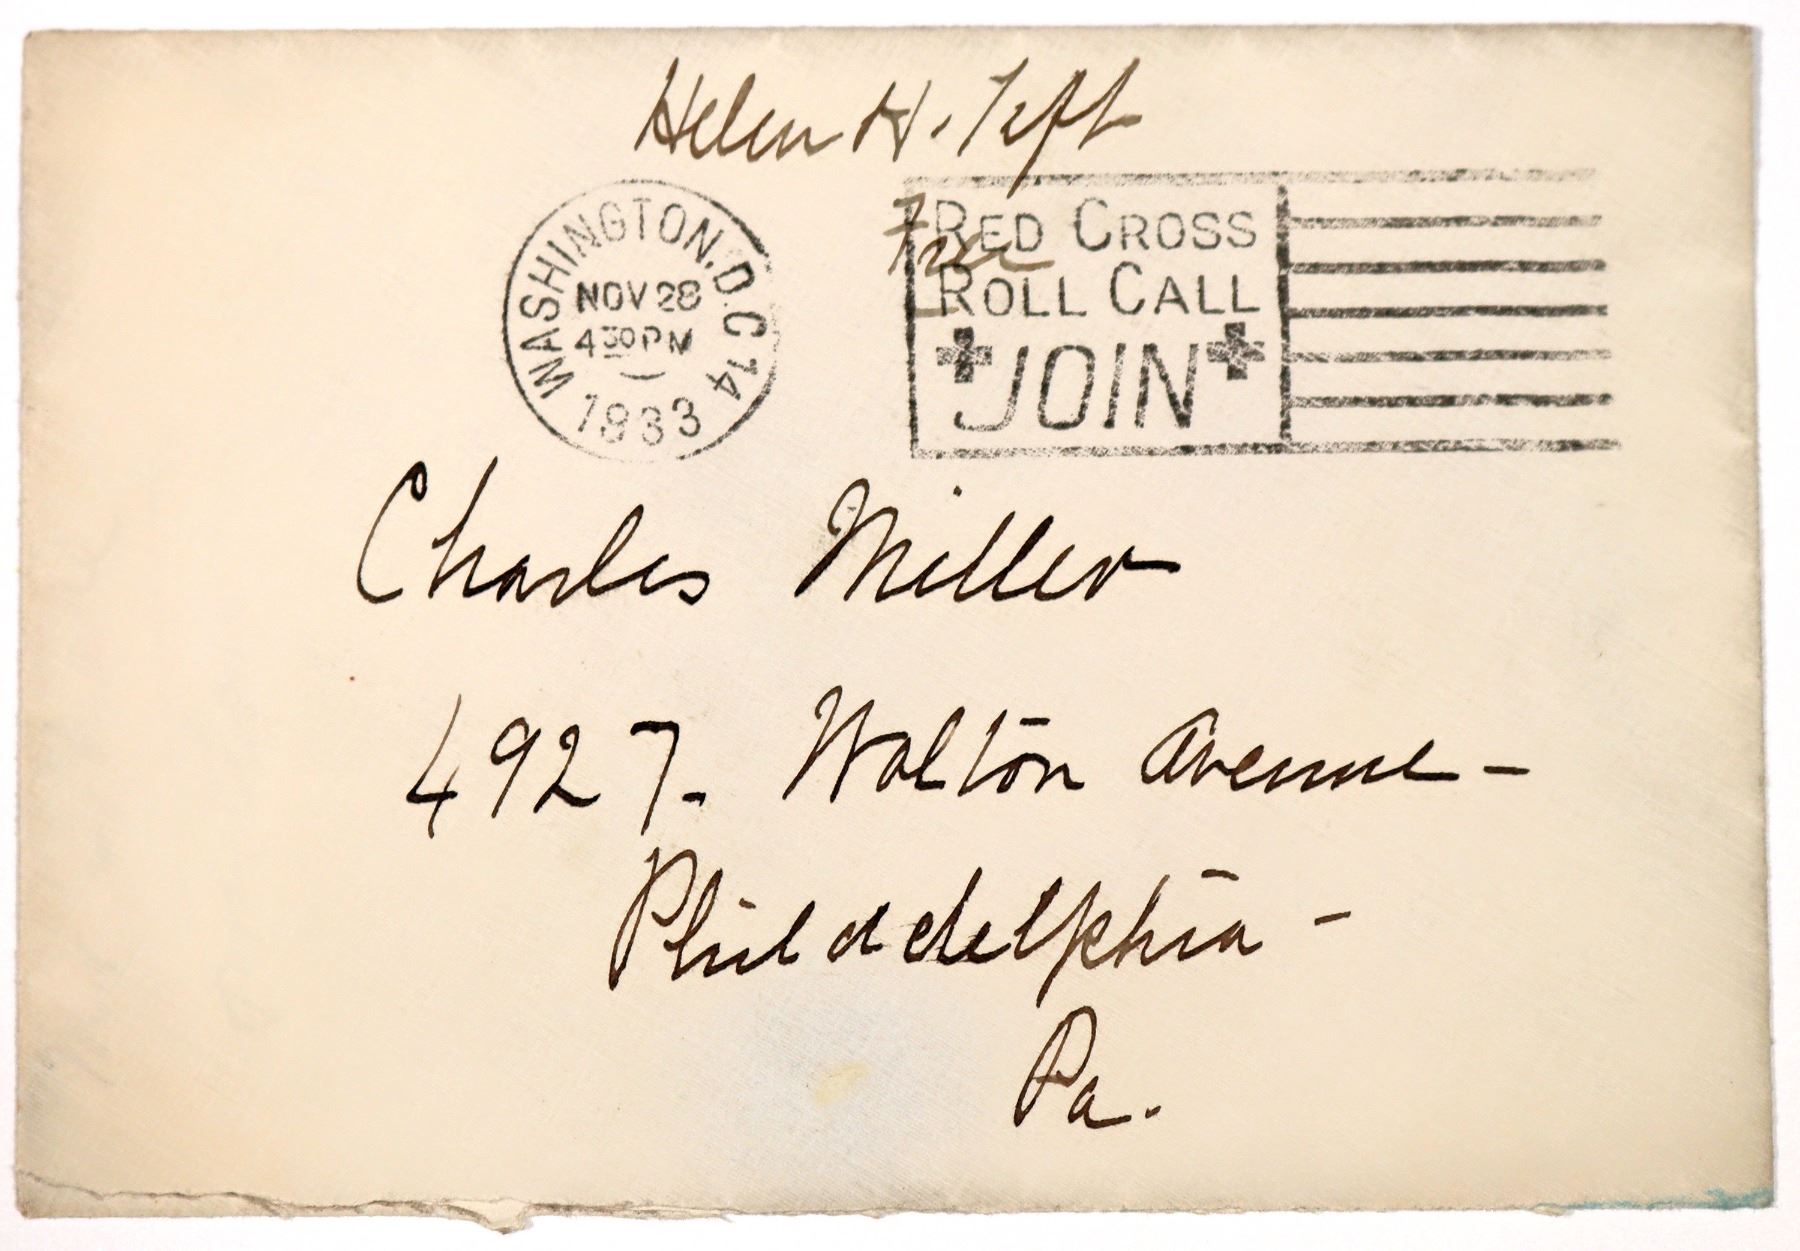 Helen H. Taft
Free
WASHINGTON, D.C. 14
NOV 28
4 30 PM
1933
RED CROSS
ROLL CALL
JOIN
Charles Miller
4927. Walton Avenue -
Philadelphia -
Pa.